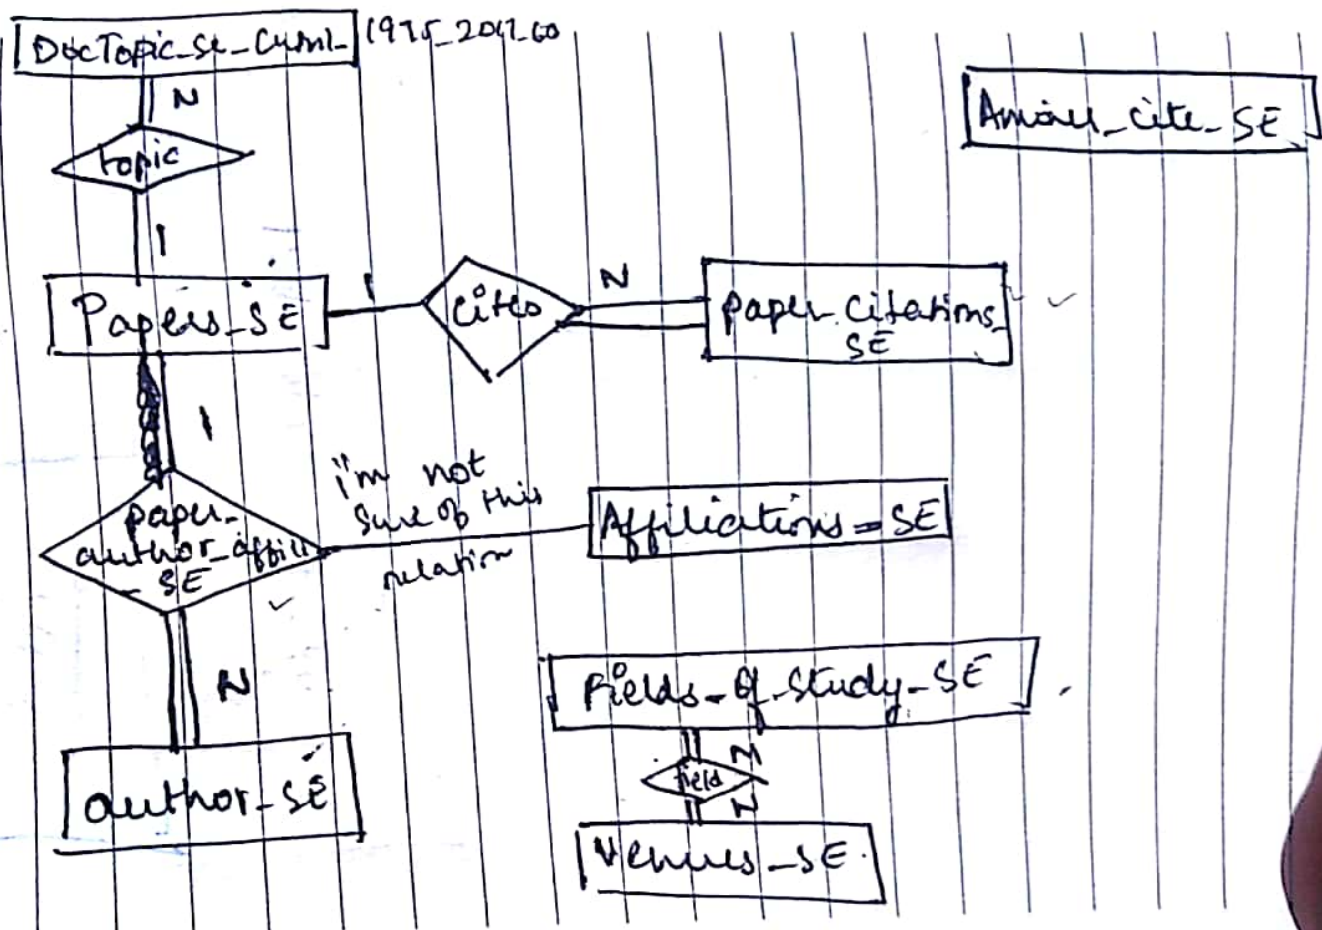 DocTopic_se_Cuml_ 1975_2017_60
N
topic
1
Papers_SE
1
cites
N
paper_Citations_
SE
Aminer_cite_SE
1
paper_
author_affili
_SE
i'm not
sure of this
relation
Affiliations_SE
N
author_SE
Fields_of_study_SE
M
field
N
Venues_SE